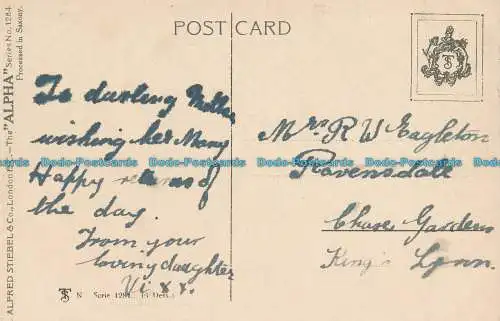 POST CARD
ALFRED STIEBEL & Co., London E.C.—The "ALPHA" Series No. 1284.
Processed in Saxony.
To darling Mother
wishing her Many
Happy returns of
the day.
From your
loving daughter
Vi x x.
Mrs R W Eagleton
Ravensdale
Chase Gardens
King's Lynn.
Dodo-Postcards Dodo-Postcards Dodo-Postcards Dodo-Postcards
N Serie 1284.